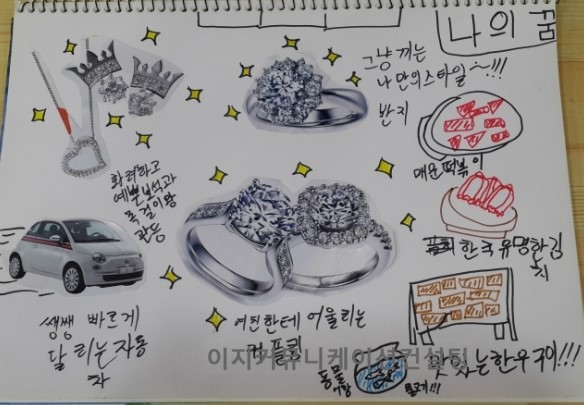 나의 꿈
그냥 끼는
나만의 스타일~!!!
반지
매운떡볶이
화려하고
예쁜 보석과
목걸이랑
관등
한국 유명한 김
치
쌩쌩 빠르게
달리는 자동
차
여친한테 어울리는
커플링
이지커뮤니케이션컨설팅
맛있는 한우구이!!!
동물